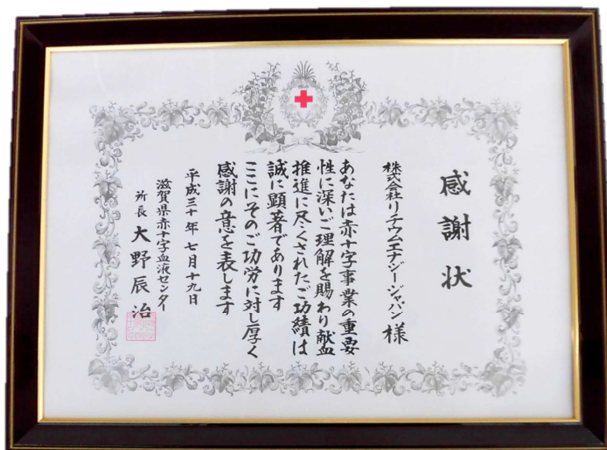 感謝状
株式会社リチウムエナジージャパン 様
あなたは赤十字事業の重要
性に深いご理解を賜わり献血
推進に尽くされたご功績は
誠に顕著であります
ここにそのご功労に対し厚く
感謝の意を表します
平成三十年七月十九日
滋賀県赤十字血液センター
所長 大野辰治